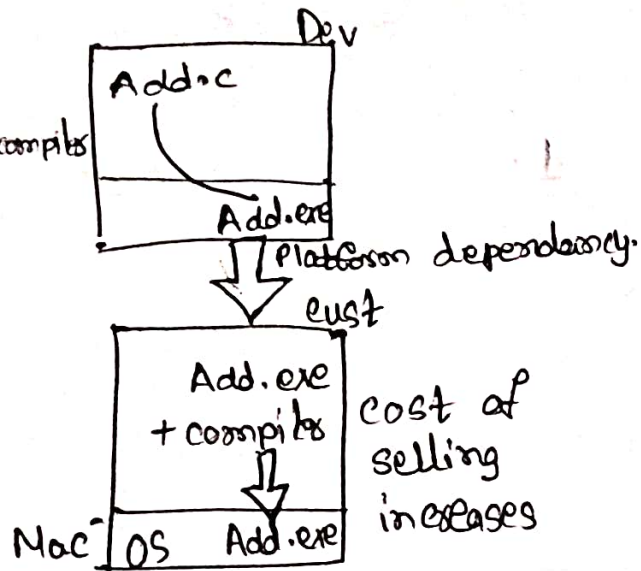 Dev
Add.c
compiler
Add.exe
Platform dependancy.
cust
Add.exe
+ compiler
cost of
selling
increases
Mac OS Add.exe